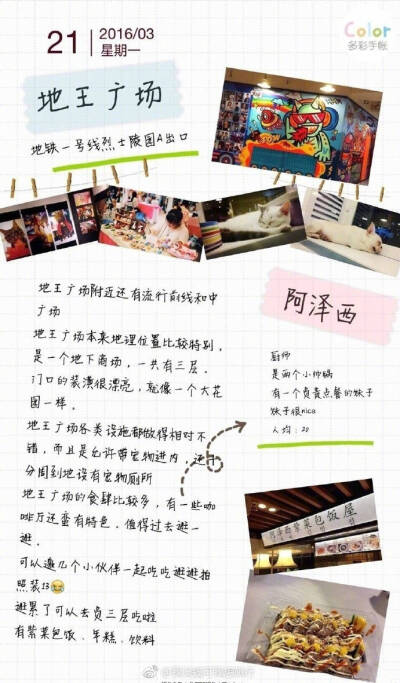 21
2016/03
星期一
Color
多彩手帐
地王广场
地铁一号线烈士陵园A出口
地王广场附近还有流行前线和中
广场
地王广场本来地理位置比较特别,
是一个地下商场,一共有三层.
门口的装潢很漂亮,就像一个大花
园一样.
地王广场各类设施都做得相对不
错,而且是允许带宠物进内,还十
分周到地设有宠物厕所
地王广场的食肆比较多,有一些咖
啡厅还蛮有特色.值得过去逛一
逛.
可以邀几个小伙伴一起吃吃逛逛拍
照装13😂
逛累了可以去负三层吃啦
有紫菜包饭、年糕、饮料
阿泽西
厨师
是两个小帅锅
有一个负责点餐的妹子
妹子很nice
人均:20
紫菜包饭屋